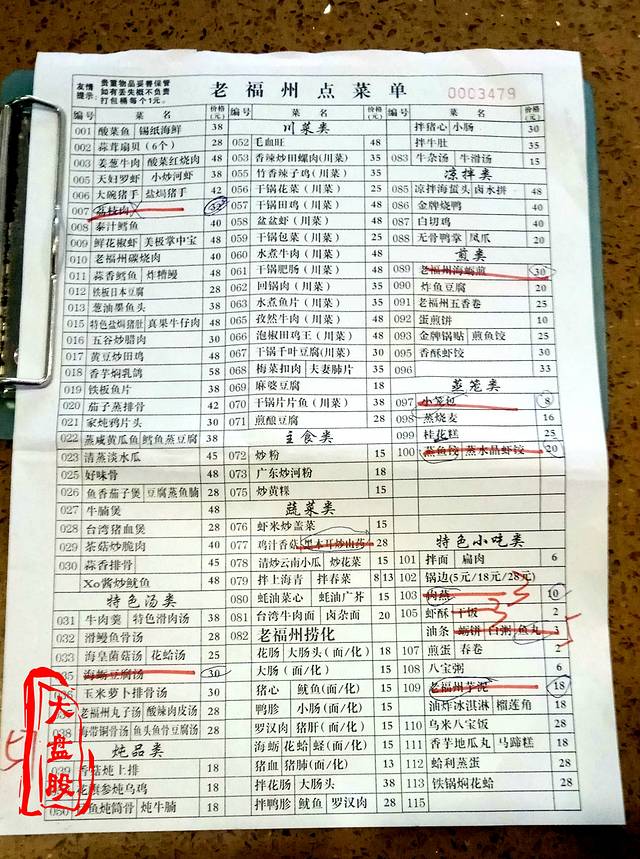 友情提示: 贵重物品妥善保管 如有丢失概不负责 打包桶每个1元。
老福州点菜单
0003479
编号 菜名 价格(元)
001 酸菜鱼 锡纸海鲜 38
002 蒜茸扇贝(6个) 28
003 姜葱牛肉 酸菜红烧肉 48
005 天妇罗虾 小炒河虾 38
006 大碗猪手 盐焗猪手 42
007 荔枝肉
008 泰汁鳕鱼 40
009 鲜花椒虾 美极掌中宝 48
010 老福州碳烧肉 40
011 蒜香鳕鱼 炸糟鳗 48
012 铁板日本豆腐 28
013 葱油墨鱼头 38
015 特色盐焗猪肚 真果牛仔肉 48
016 五谷炒腊肉 30
017 黄豆炒田鸡 48
018 香芋焖乳鸽 58
019 铁板鱼片 38
020 茄子蒸排骨 42
021 家炖鸦片头 30
022 蒸咸黄瓜鱼 鳕鱼蒸豆腐 38
023 清蒸淡水瓜 45
025 好味骨 48
026 鱼香茄子煲 豆腐蒸鱼腩 28
027 牛腩煲 48
028 台湾猪血煲 28
029 茶菇炒脆肉 40
030 蒜香排骨 48
Xo酱炒鱿鱼 48
特色汤类
031 牛肉羹 特色滑肉汤 38
032 滑鳗鱼骨汤 28
033 海皇菌菇汤 花蛤汤 25
035 海蛎豆腐汤 30
玉米萝卜排骨汤 30
老福州丸子汤 酸辣肉皮汤 28
038 海带铜骨汤 鱼头鱼骨豆腐汤 28
炖品类
039 香菇炖上排 18
花旗参炖乌鸡 18
050 鱼炖筒骨 炖牛腩 18
大盘股
编号 菜名 价格(元)
川菜类
052 毛血旺 48
053 香辣炒田螺肉(川菜) 35
055 竹香辣子鸡(川菜) 35
056 干锅花菜(川菜) 25
057 干锅田鸡(川菜) 48
058 盆盆虾(川菜) 48
059 干锅包菜(川菜) 25
060 水煮牛肉(川菜) 48
061 干锅肥肠(川菜) 48
062 回锅肉(川菜) 35
063 水煮鱼片(川菜) 35
065 孜然牛肉(川菜) 48
066 泡椒田鸡王(川菜) 48
067 干锅千叶豆腐(川菜) 30
068 梅菜扣肉 夫妻肺片 35
069 麻婆豆腐 18
070 干锅片片鱼(川菜) 38
071 煎酿豆腐 28
主食类
072 炒粉 15
073 广东炒河粉 18
075 炒黄粿 15
蔬菜类
076 虾米炒盖菜 15
077 鸡汁香菇 黑木耳炒山药 28
078 清炒云南小瓜 炒花菜 15
079 拌上海青 拌春菜 8 13
080 蚝油菜心 蚝油广芥 15
081 台湾牛肉面 卤杂面 20
082 老福州捞化
花肠 大肠头(面/化) 18
大肠(面/化) 15
猪心 鱿鱼(面/化) 15
鸭胗 小肠(面/化) 15
罗汉肉 猪肝(面/化) 15
海蛎 花蛤 蛏(面/化) 15
猪血 猪肺(面/化) 13
拌花肠 大肠头 38
拌鸭胗 鱿鱼 罗汉肉 28
编号 菜名 价格(元)
拌猪心 小肠 30
拌牛肚 35
083 牛杂汤 牛滑汤 15
凉拌类
085 凉拌海蜇头 卤水拼 48
086 金牌烧鸭 40
087 白切鸡 40
088 无骨鸭掌 凤爪 20
煎类
089 老福州海蛎煎 30
090 炸鱼豆腐 20
091 老福州五香卷 25
092 蛋煎饼 10
093 金牌锅贴 煎鱼饺 25
095 香酥虾饺 30
096 33
蒸笼类
097 小笼包 8
098 蒸烧麦 16
099 桂花糕 25
100 蒸鱼饺 蒸水晶虾饺 20
特色小吃类
101 拌面 扁肉 6
102 锅边(5元/18元/28元)
103 肉燕 10
105 虾酥 干饭 2
油条 蛎饼 白粥 鱼丸 3
107 煎蛋 春卷 2
108 八宝粥 6
109 老福州芋泥 18
油炸冰淇淋 榴莲角 18
110 乌米八宝饭 28
111 香芋地瓜丸 马蹄糕 18
112 蛤利蒸蛋 28
113 铁锅焖花蛤 28
115